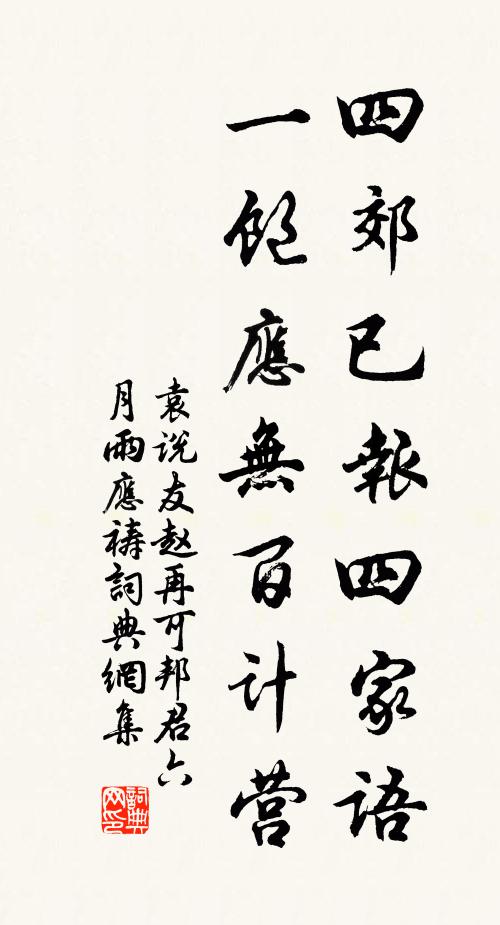 四郊已報四家語
一飽應無百计营
袁说友赵再可邦君六
月雨應祷詞典網集
詞典网印